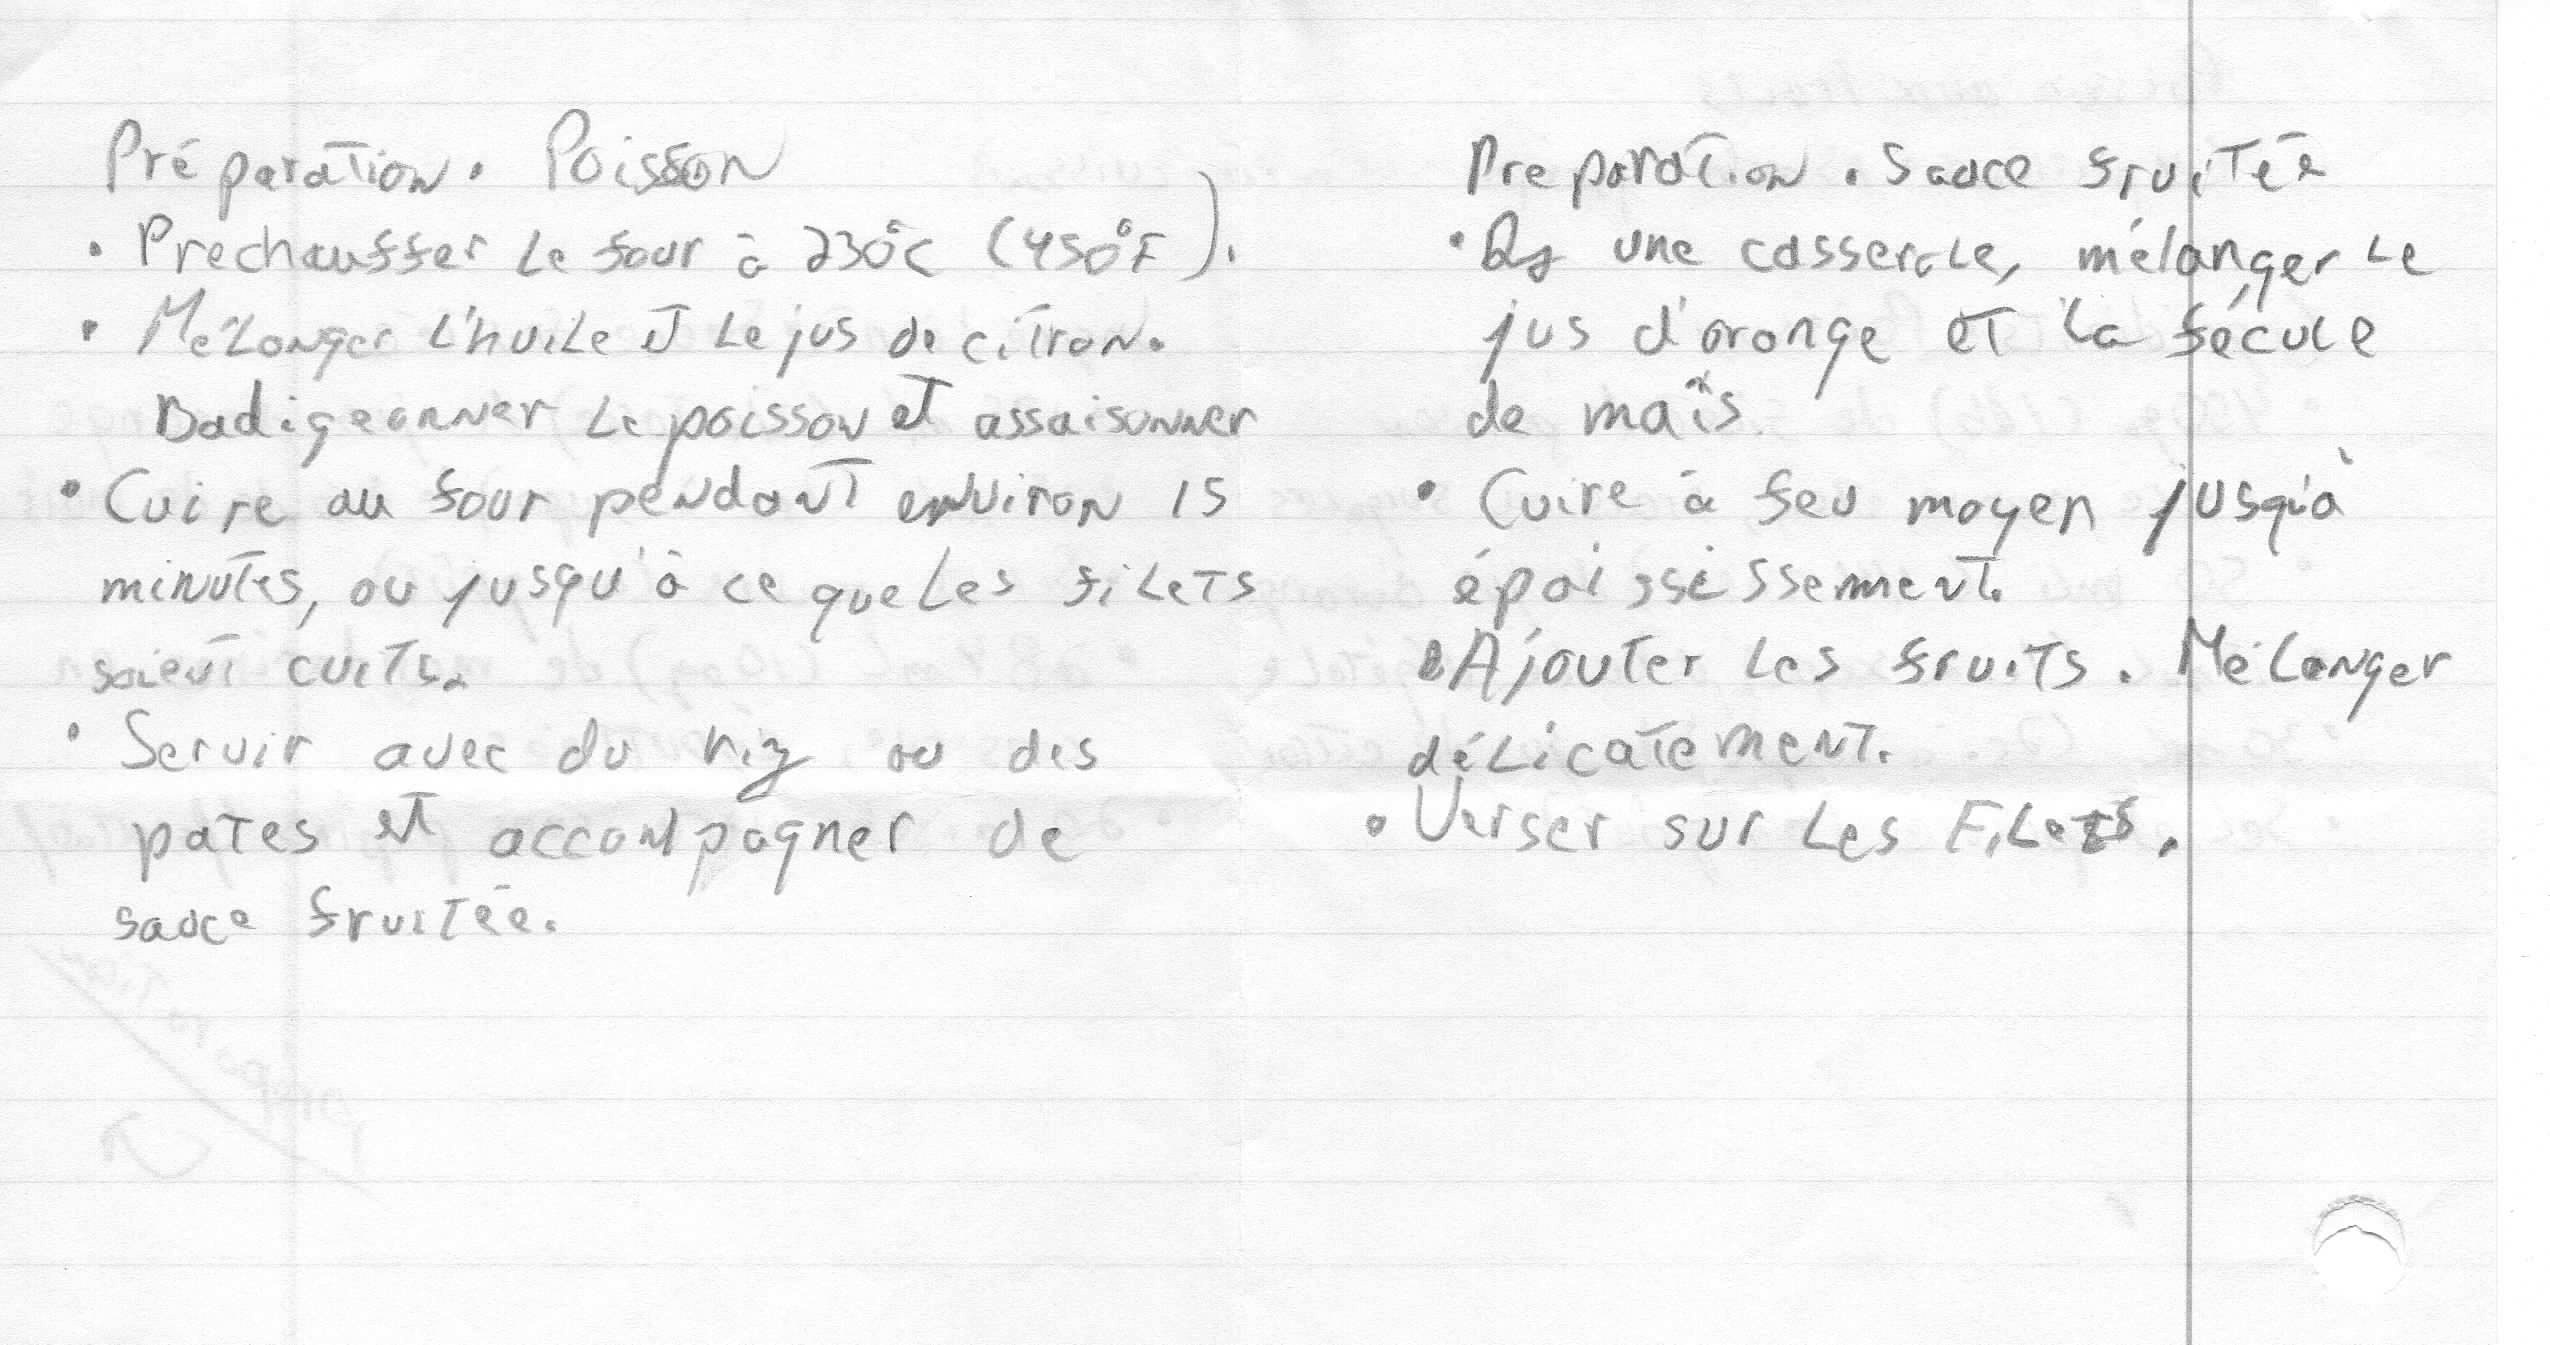 Préparation. Poisson
• Prechauffer le four à 230°C (450°F).
• Mélanger l'huile et le jus de citron.
Badigeonner le poisson et assaisonner
• Cuire au four pendant environ 15
minutes, ou jusqu'à ce que les filets
soient cuits.
• Servir avec du riz ou des
pates et accompagner de
sauce fruitée.
Preparation. Sauce fruitée
• Ds une casserole, mélanger le
jus d'orange et la fécule
de maïs.
• Cuire à feu moyen jusqu'à
épaississement.
• Ajouter les fruits. Mélanger
délicatement.
• Verser sur les Filets.